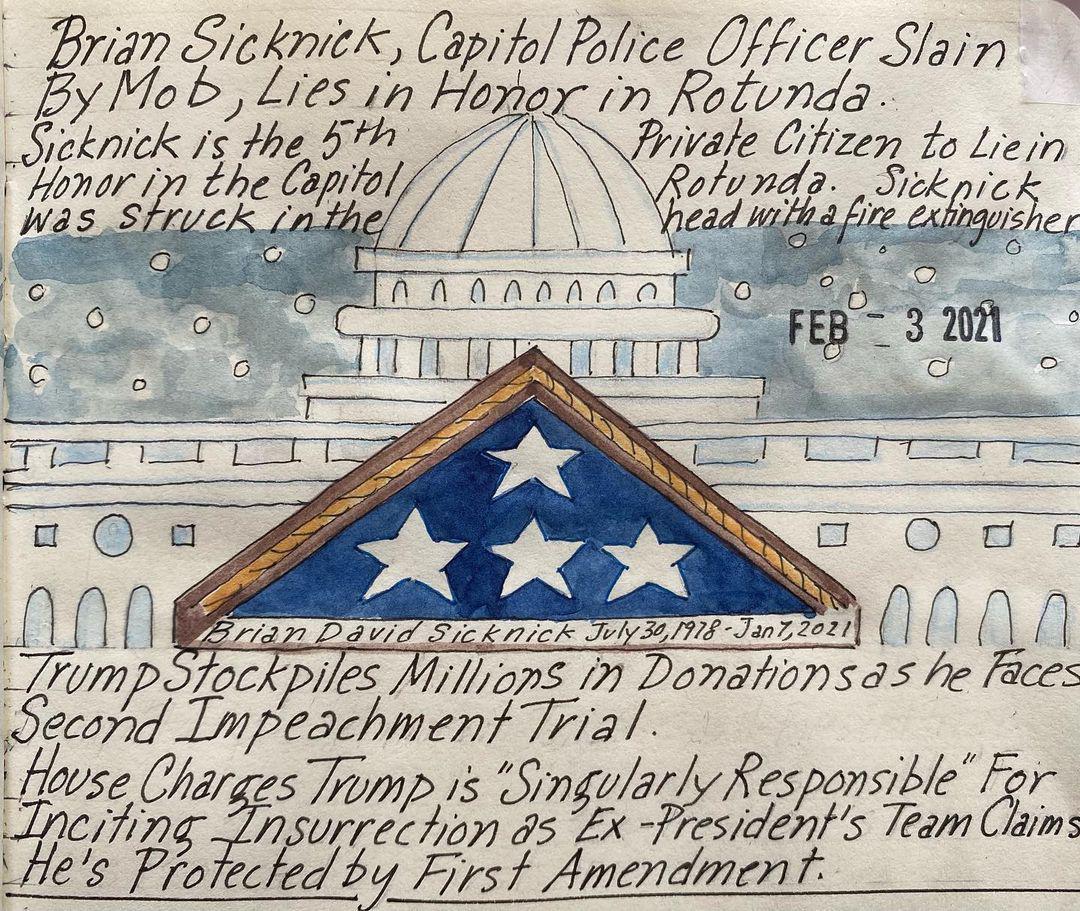 Brian Sicknick, Capitol Police Officer Slain
By Mob, Lies in Honor in Rotunda.
Sicknick is the 5th Private Citizen to Lie in
Honor in the Capitol Rotunda. Sicknick
was struck in the head with a fire extinguisher
FEB - 3 2021
Brian David Sicknick July 30, 1978 - Jan 7, 2021
Trump Stockpiles Millions in Donations as he Faces
Second Impeachment Trial.
House Charges Trump is "Singularly Responsible" For
Inciting Insurrection as Ex-President's Team Claims
He's Protected by First Amendment.